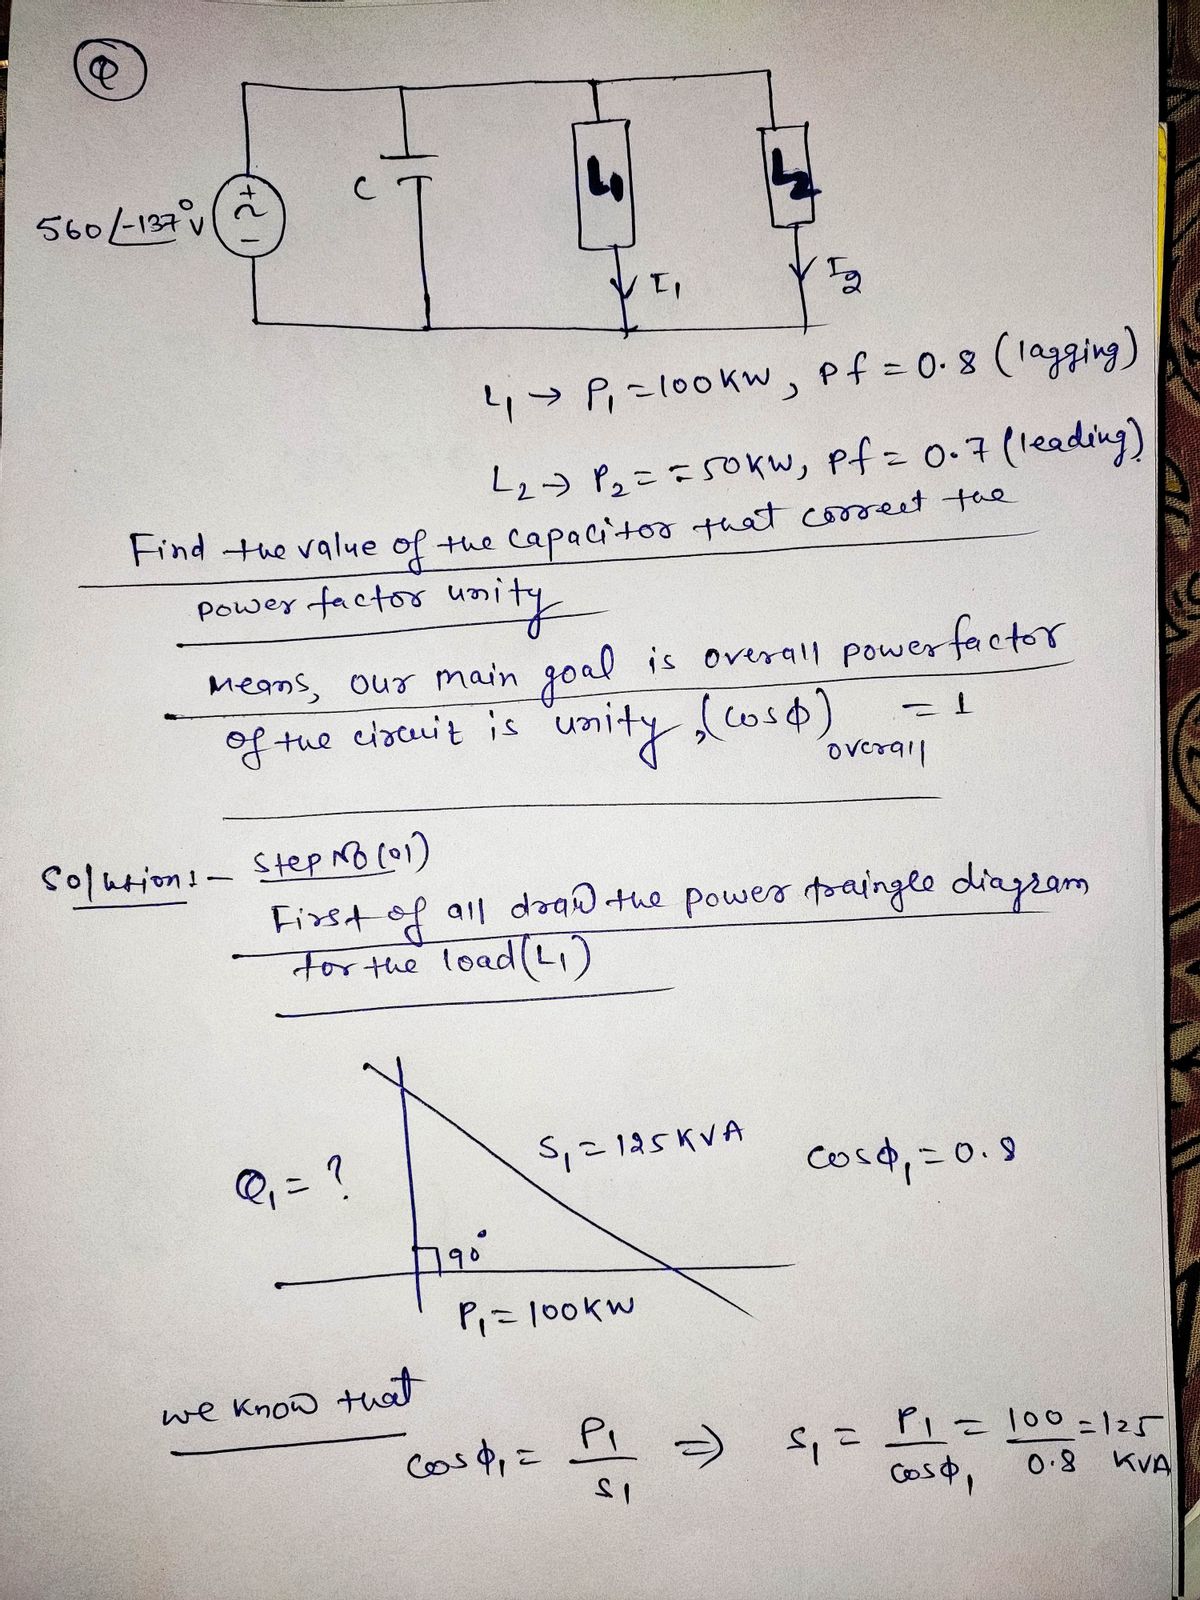 Q
C
L1
L2
560∠-137° V
+
~
−
I1
I2
L1 → P1 = 100KW, Pf = 0.8 (lagging)
L2 → P2 = = 50KW, Pf = 0.7 (leading)
Find the value of the capacitor that correct the
power factor unity
Means, our main goal is overall power factor
of the circuit is unity, (cosφ)overall = 1
Solution:- Step No (01)
First of all draw the power traingle diagram
for the load (L1)
Q1 = ?
S1 = 125 KVA
cosφ1 = 0.8
90°
P1 = 100KW
we know that
cosφ1 = P1/S1 ⇒ S1 = P1/cosφ1 = 100/0.8 = 125 KVA